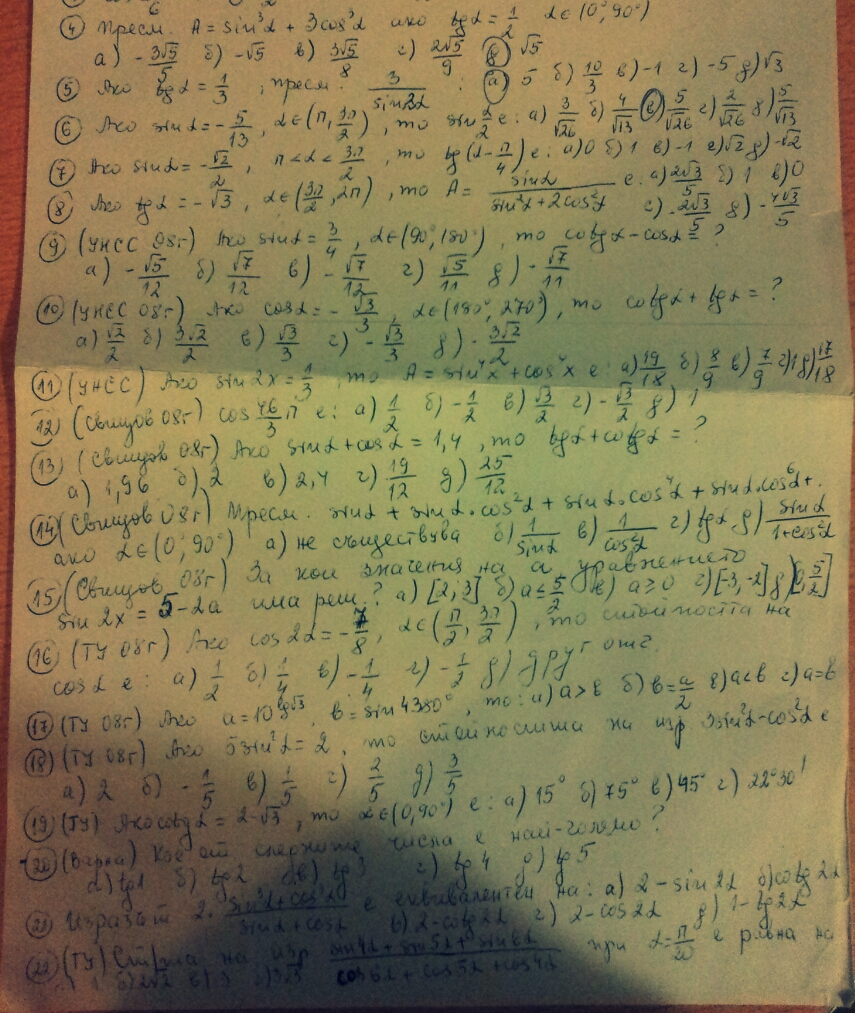 ④ Пресм. A = sin³α + 3cos³α ако tgα = 1/2 α∈(0°,90°)
а) -3√5/5 б) -√5 в) 3√5/8 г) 2√5/9 д) √5
⑤ Ако tgα = 1/3, пресм. 3/sin2α : а) 5 б) 10/3 в) -1 г) -5 д) √3
⑥ Ако sinα = -5/13, α∈(π, 3π/2), то sin α/2 е: а) 3/√26 б) 4/√13 в) 5/√26 г) 2/√26 д) 5/√13
⑦ Ако sinα = -√2/2, π<α<3π/2, то tg(α-π/4) е: а) 0 б) 1 в) -1 г) √2 д) -√2
⑧ Ако tgα = -√3, α∈(3π/2, 2π), то A = sinα/(sin²α+2cos²α) е: а) 2√3/5 б) 1 в) 0
г) -2√3/5 д) -4√3/5
⑨ (УНСС 08г) Ако sinα = 3/4, α∈(90°,180°), то cotgα-cosα = ?
а) -√5/12 б) √7/12 в) -√7/12 г) √5/11 д) -√7/11
⑩ (УНСС 08г) Ако cosα = -√3/3, α∈(180°, 270°), то cotgα + tgα = ?
а) √2/2 б) 3√2/2 в) √3/3 г) -√3/3 д) -3√2/2
⑪ (УНСС) Ако sin2x = 1/3, то A = sin⁴x + cos⁴x е: а) 19/18 б) 8/9 в) 7/9 г) 1 д) 17/18
⑫ (Свищов 08г) cos 46/3 π е: а) 1/2 б) -1/2 в) √3/2 г) -√3/2 д) 1
⑬ (Свищов 08г) Ако sinα + cosα = 1,4, то tgα + cotgα = ?
а) 1,96 б) 2 в) 2,4 г) 19/12 д) 25/12
⑭ (Свищов 08г) Пресм. sinα + sinα.cos²α + sinα.cos⁴α + sinα.cos⁶α + .
ако α∈(0°,90°) а) не съществува б) 1/sinα в) 1/cos²α г) tgα д) sinα/(1+cos²α)
⑮ (Свищов 08г) За кои значения на a уравнението
sin2x = 5-2a има реш.? а) [2;3] б) a ≤ 5/2 в) a ≥ 0 г) [-3,-2] д) [0, 5/2]
⑯ (ТУ 08г) Ако cos2α = -7/8, α∈(π/2, 3π/2), то стойността на
cosα е: а) 1/2 б) 1/4 в) -1/4 г) -1/2 д) друг отг.
⑰ (ТУ 08г) Ако a = 10^lg√3, b = sin4380°, то: а) a>b б) b = a/2 в) a<b г) a=b
⑱ (ТУ 08г) Ако 5sin²α = 2, то стойността на изр 3sin²α-cos²α е
а) 2 б) -1/5 в) 1/5 г) 2/5 д) 3/5
⑲ (ТУ) Ако cotgα = 2-√3, то α∈(0,90°) е: а) 15° б) 75° в) 45° г) 22°30'
⑳ (Варна) Кое от следните числа е най-голямо?
а) tg1 б) tg2 в) tg3 г) tg4 д) tg5
㉑ Изразът 2.(sin³α+cos³α)/(sinα+cosα) е еквивалентен на: а) 2-sin2α б) cotg2α
в) 2-cotg2α г) 2-cos2α д) 1-tg2α
㉒ (ТУ) Ст/та на изр (sin4α + sin5α + sin6α)/(cos6α + cos5α + cos4α) при α = π/20 е равна на
б) 2√2 в) 3 г) 3√3